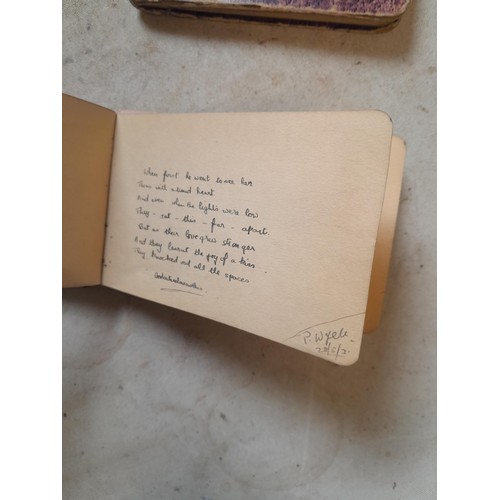 When first he went to see her
with a timid heart
And even when the lights were low
They - sat - this - far - apart.
But as their love grew stronger
And they learnt the joy of a kiss
They knocked out all the spaces
andsatuplikethis.
P. Wyell.